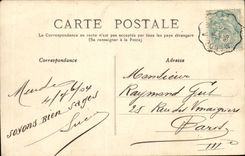 CARTE POSTALE
La Correspondance au recto n'est pas acceptée par tous les pays étrangers
(Se renseigner à la Poste)
Correspondance
Adresse
Mende
4/4/04
soyons bien sages
Luc
Monsieur
Raymond
25 Rue des Vinaigriers
Paris